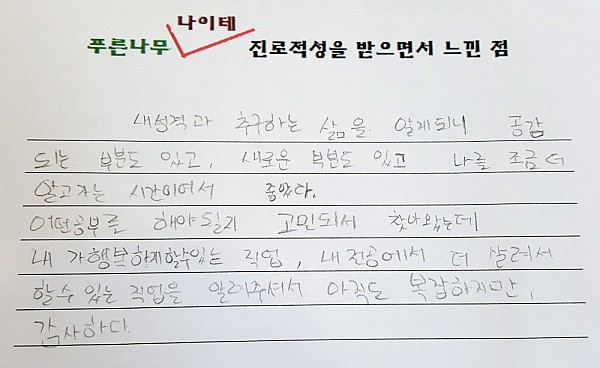 나이테
푸른나무 진로적성을 받으면서 느낀 점
내성격과 추구하는 삶을 알게되니 공감
되는 부분도 있고, 새로운 부분도 있고 나를 조금 더
알고자는 시간이어서 좋았다.
어떤공부로 해야될지 고민되서 찾아왔는데
내가행복하게할수있는 직업, 내전공에서 더 살려서
할수 있는 직업을 알려주셔서 아직도 복잡하지만,
감사하다.